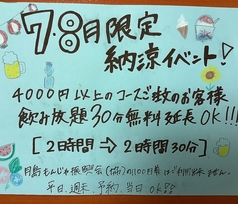 7.8月限定
納涼イベント!
4000円以上のコースご注文のお客様
飲み放題30分無料延長OK!!!
[2時間→2時間30分]
月島もんじゃ振興会(協)の1100円券はご利用出来ません。
平日、週末、予約、当日OK!!